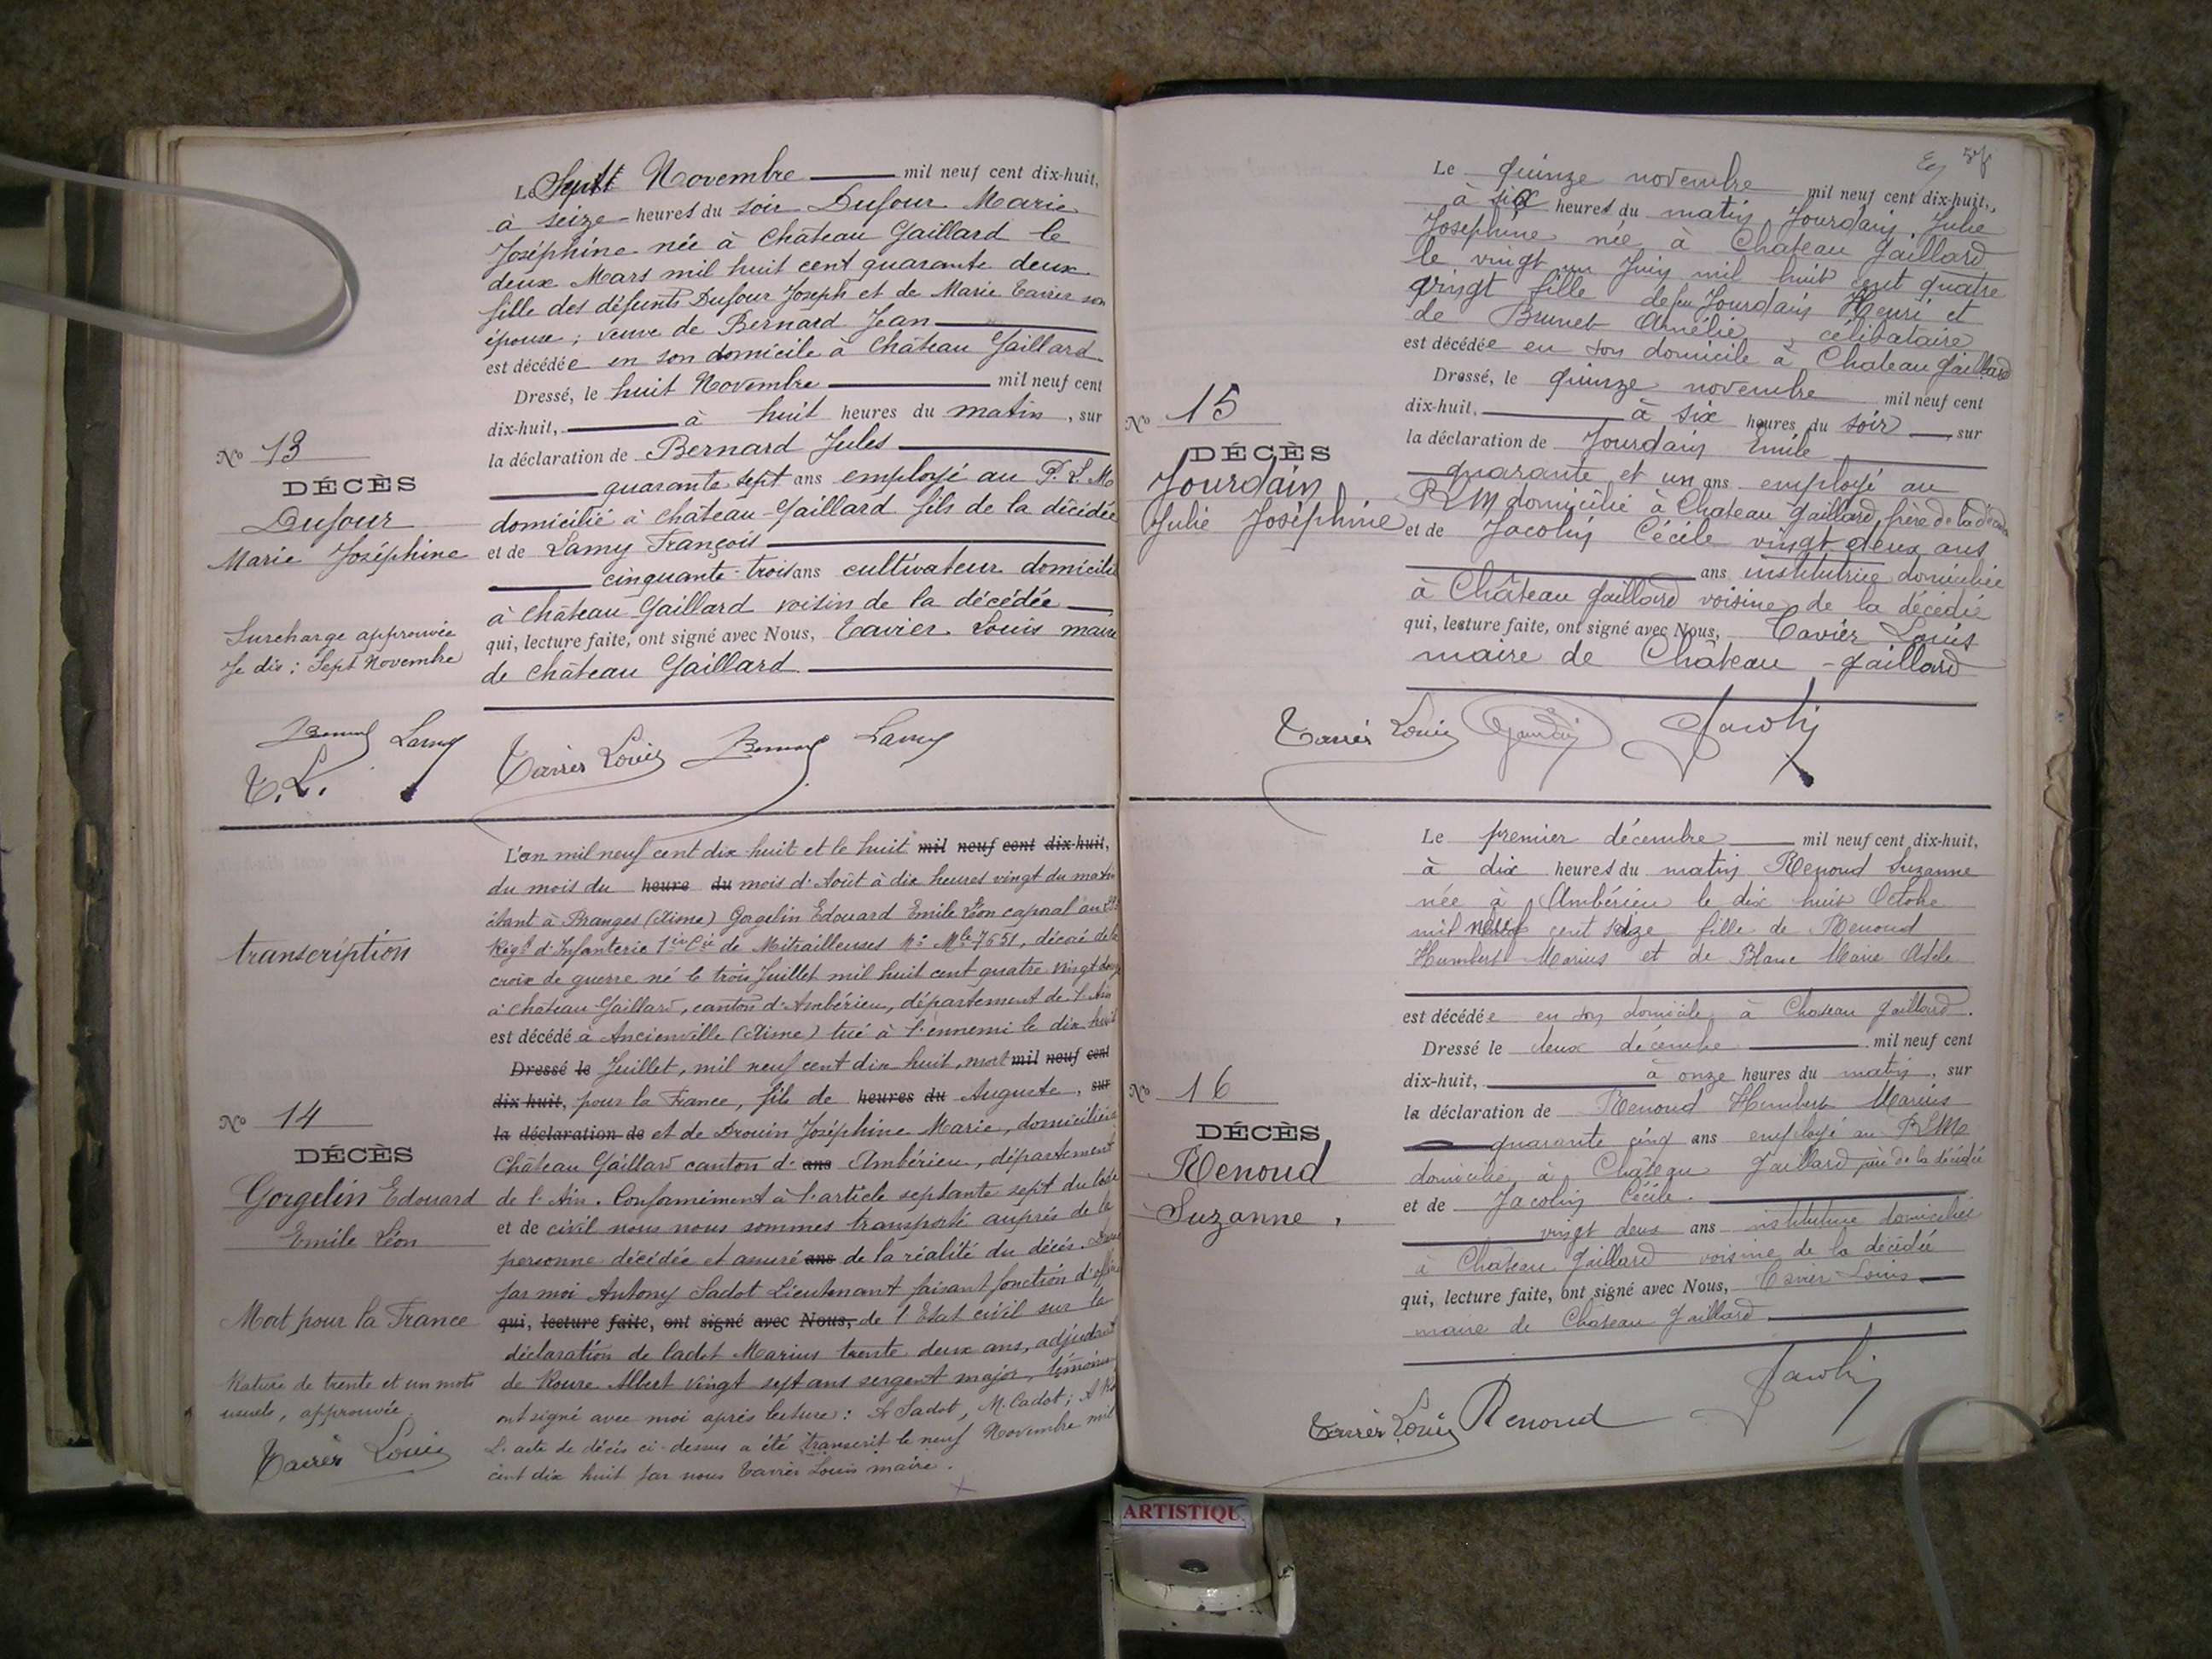 Le Sept Novembre mil neuf cent dix-huit,
à seize heures du soir Dufour Marie
Joséphine née à Château Gaillard le
deux Mars mil huit cent quarante deux
fille des défunts Dufour Joseph et de Marie Tavier son
épouse ; veuve de Bernard Jean
est décédée en son domicile à Château Gaillard
Dressé, le huit Novembre mil neuf cent
dix-huit, à huit heures du matin, sur
la déclaration de Bernard Jules
quarante sept ans employé au P. L. M
domicilié à Château-Gaillard fils de la décédée
et de Lamy François
cinquante-trois ans cultivateur domicilié
à Château Gaillard voisin de la décédée
qui, lecture faite, ont signé avec Nous, Tavier Louis maire
de Château Gaillard
No 13
DÉCÈS
Dufour
Marie Joséphine
Surcharge approuvée
Je dis : Sept Novembre
Bernard Lamy
T. L.
Tavier Louis Bernard Lamy
L'an mil neuf cent dix-huit et le huit mil neuf cent dix-huit,
du mois du heure du mois d'Août à dix heures vingt du matin
étant à Branges (Aisne) Gorgelin Edouard Emile Léon caporal au
Regt d'Infanterie 1ère Cie de Mitrailleuses No Mle 7651, décoré de la
croix de guerre né le trois Juillet mil huit cent quatre vingt
à Château-Gaillard, canton d'Ambérieu, département de l'Ain
est décédé à Ancienville (Aisne) tué à l'ennemi le dix huit
Dressé le Juillet, mil neuf cent dix huit, mort mil neuf cent
dix huit, pour la France, fils de heures du Auguste, sur
la déclaration de et de Drouin Joséphine Marie, domiciliés
Château Gaillard canton d' ans Ambérieu, département
de l'Ain. Conformément à l'article septante sept du Code
et de civil nous nous sommes transporté auprès de la
personne décédée et assuré ans de la réalité du décès.
par moi Antony Sadot Lieutenant faisant fonction d'officier
qui, lecture faite, ont signé avec Nous, de l'Etat civil sur la
déclaration de Cadot Marius trente deux ans, adjudant
de Roure Albert vingt sept ans sergent major, témoins
ont signé avec moi après lecture : A Sadot, M. Cadot ; A
L'acte de décès ci-dessus a été transcrit le neuf Novembre mil
cent dix huit par nous Tavier Louis maire.
transcription
No 14
DÉCÈS
Gorgelin Edouard
Emile Léon
Mort pour la France
Rature de trente et un mots
usuels, approuvée
Tavier Louis
Le quinze novembre mil neuf cent dix-huit,
à six heures du matin Jourdain Julie
Joséphine née à Chateau Gaillard
le vingt un Juin mil huit cent quatre
vingt fille de feu Jourdain Henri et
de Brunet Amélie, célibataire
est décédée en son domicile à Chateau Gaillard
Dressé, le quinze novembre mil neuf cent
dix-huit, à six heures du soir sur
la déclaration de Jourdain Emile
quarante et un ans employé au
PLM domicilié à Chateau Gaillard, frère de la décédée
et de Jacolin Cécile vingt deux ans
ans institutrice domiciliée
à Château Gaillard voisine de la décédée
qui, lecture faite, ont signé avec Nous, Tavier Louis
maire de Château-Gaillard
No 15
DÉCÈS
Jourdain
Julie Joséphine
Tavier Louis Jourdain Jacolin
Le premier décembre mil neuf cent dix-huit,
à dix heures du matin Renoud Suzanne
née à Ambérieu le dix huit Octobre
mil neuf cent seize fille de Renoud
Humbert Marius et de Blanc Marie Adèle
est décédée en son domicile à Chateau Gaillard.
Dressé le deux décembre mil neuf cent
dix-huit, à onze heures du matin, sur
la déclaration de Renoud Humbert Marius
quarante cinq ans employé au PLM
domicilié à Château Gaillard père de la décédée
et de Jacolin Cécile.
vingt deux ans institutrice domiciliée
à Château Gaillard voisine de la décédée
qui, lecture faite, ont signé avec Nous, Tavier Louis
maire de Chateau Gaillard
No 16
DÉCÈS
Renoud
Suzanne.
Tavier Louis Renoud Jacolin
ARTISTIQU